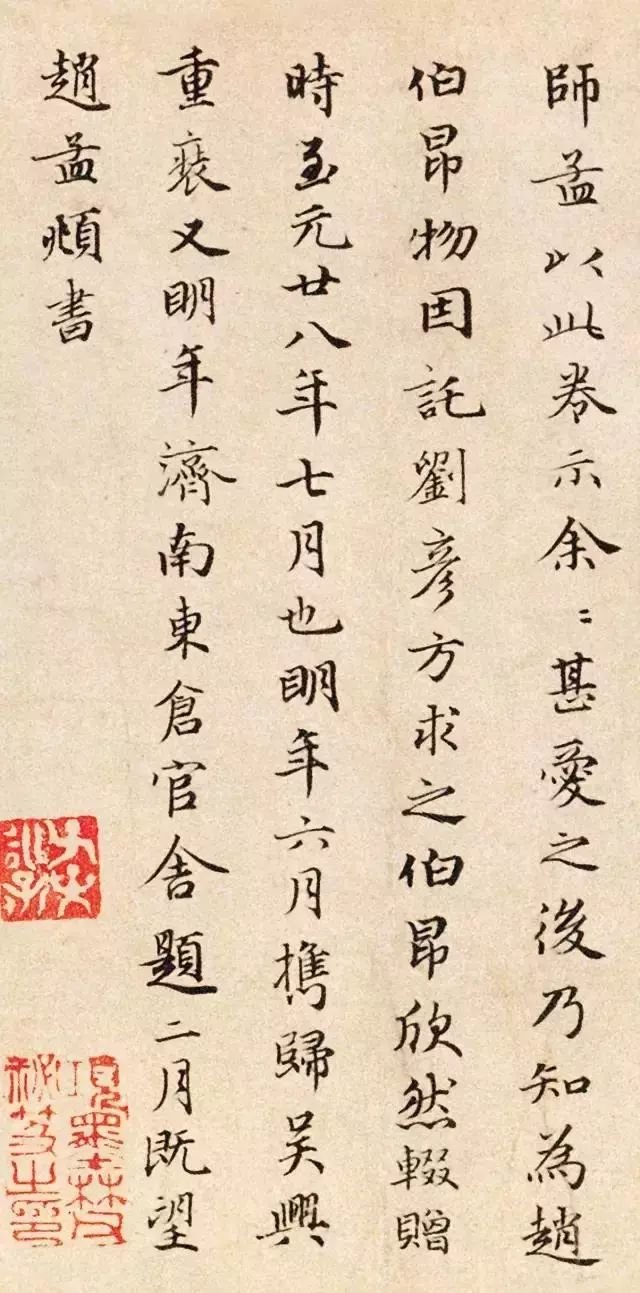 師孟以此卷示余〻甚愛之後乃知為趙
伯昂物因託劉彥方求之伯昂欣然輟贈
時至元廿八年七月也明年六月攜歸吳興
重裝又明年濟南東倉官舍題二月既望
趙孟頫書
項墨林父
秘笈之印